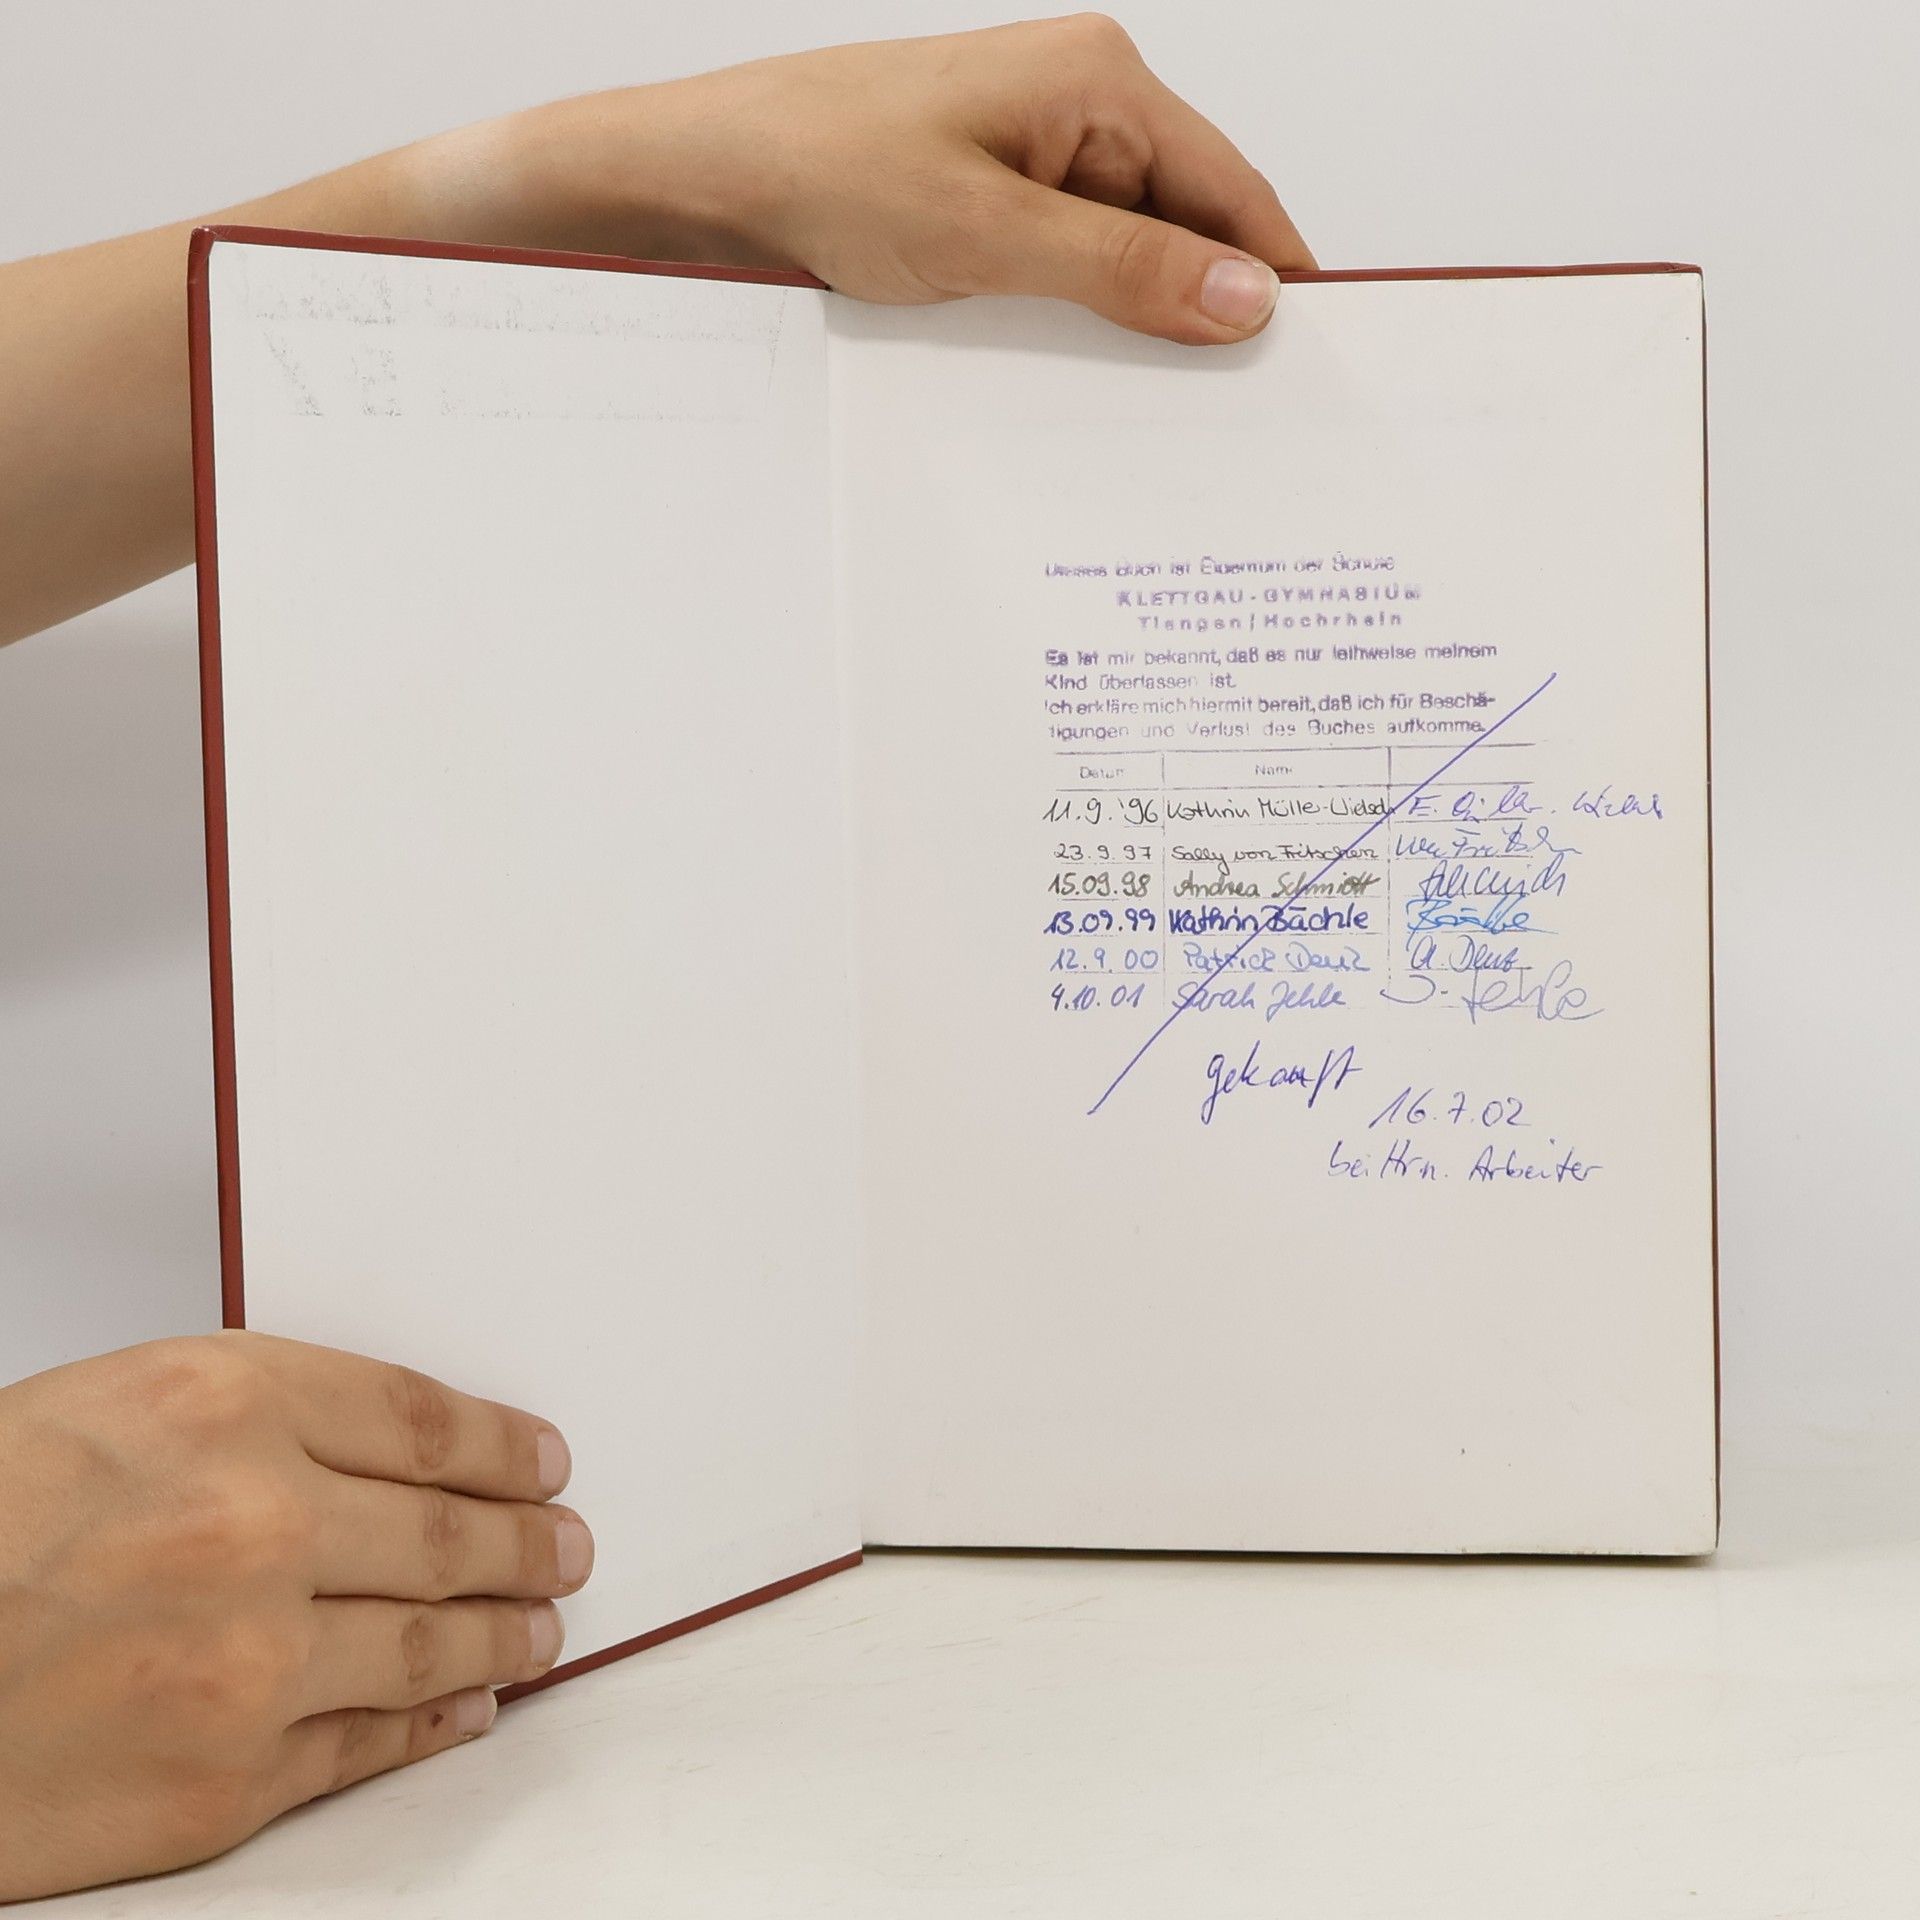 Dieses Buch ist Eigentum der Schule
KLETTGAU-GYMNASIUM
Tiengen/Hochrhein
Es ist mir bekannt, daß es nur leihweise meinem
Kind überlassen ist.
Ich erkläre mich hiermit bereit, daß ich für Beschä-
digungen und Verlust des Buches aufkomme.
Datum Name
11.9.'96 Kathrin Müller- E.
23.9.97 Sally von Fritschen
15.09.98 Andrea Schmidt
13.09.99 Kathrin Bächle Bächle
12.9.00 Patrick Denz A. Denz
4.10.01 Sarah Jehle J. Jehle
gekauft
16.7.02
bei Hrn. Arbeiter